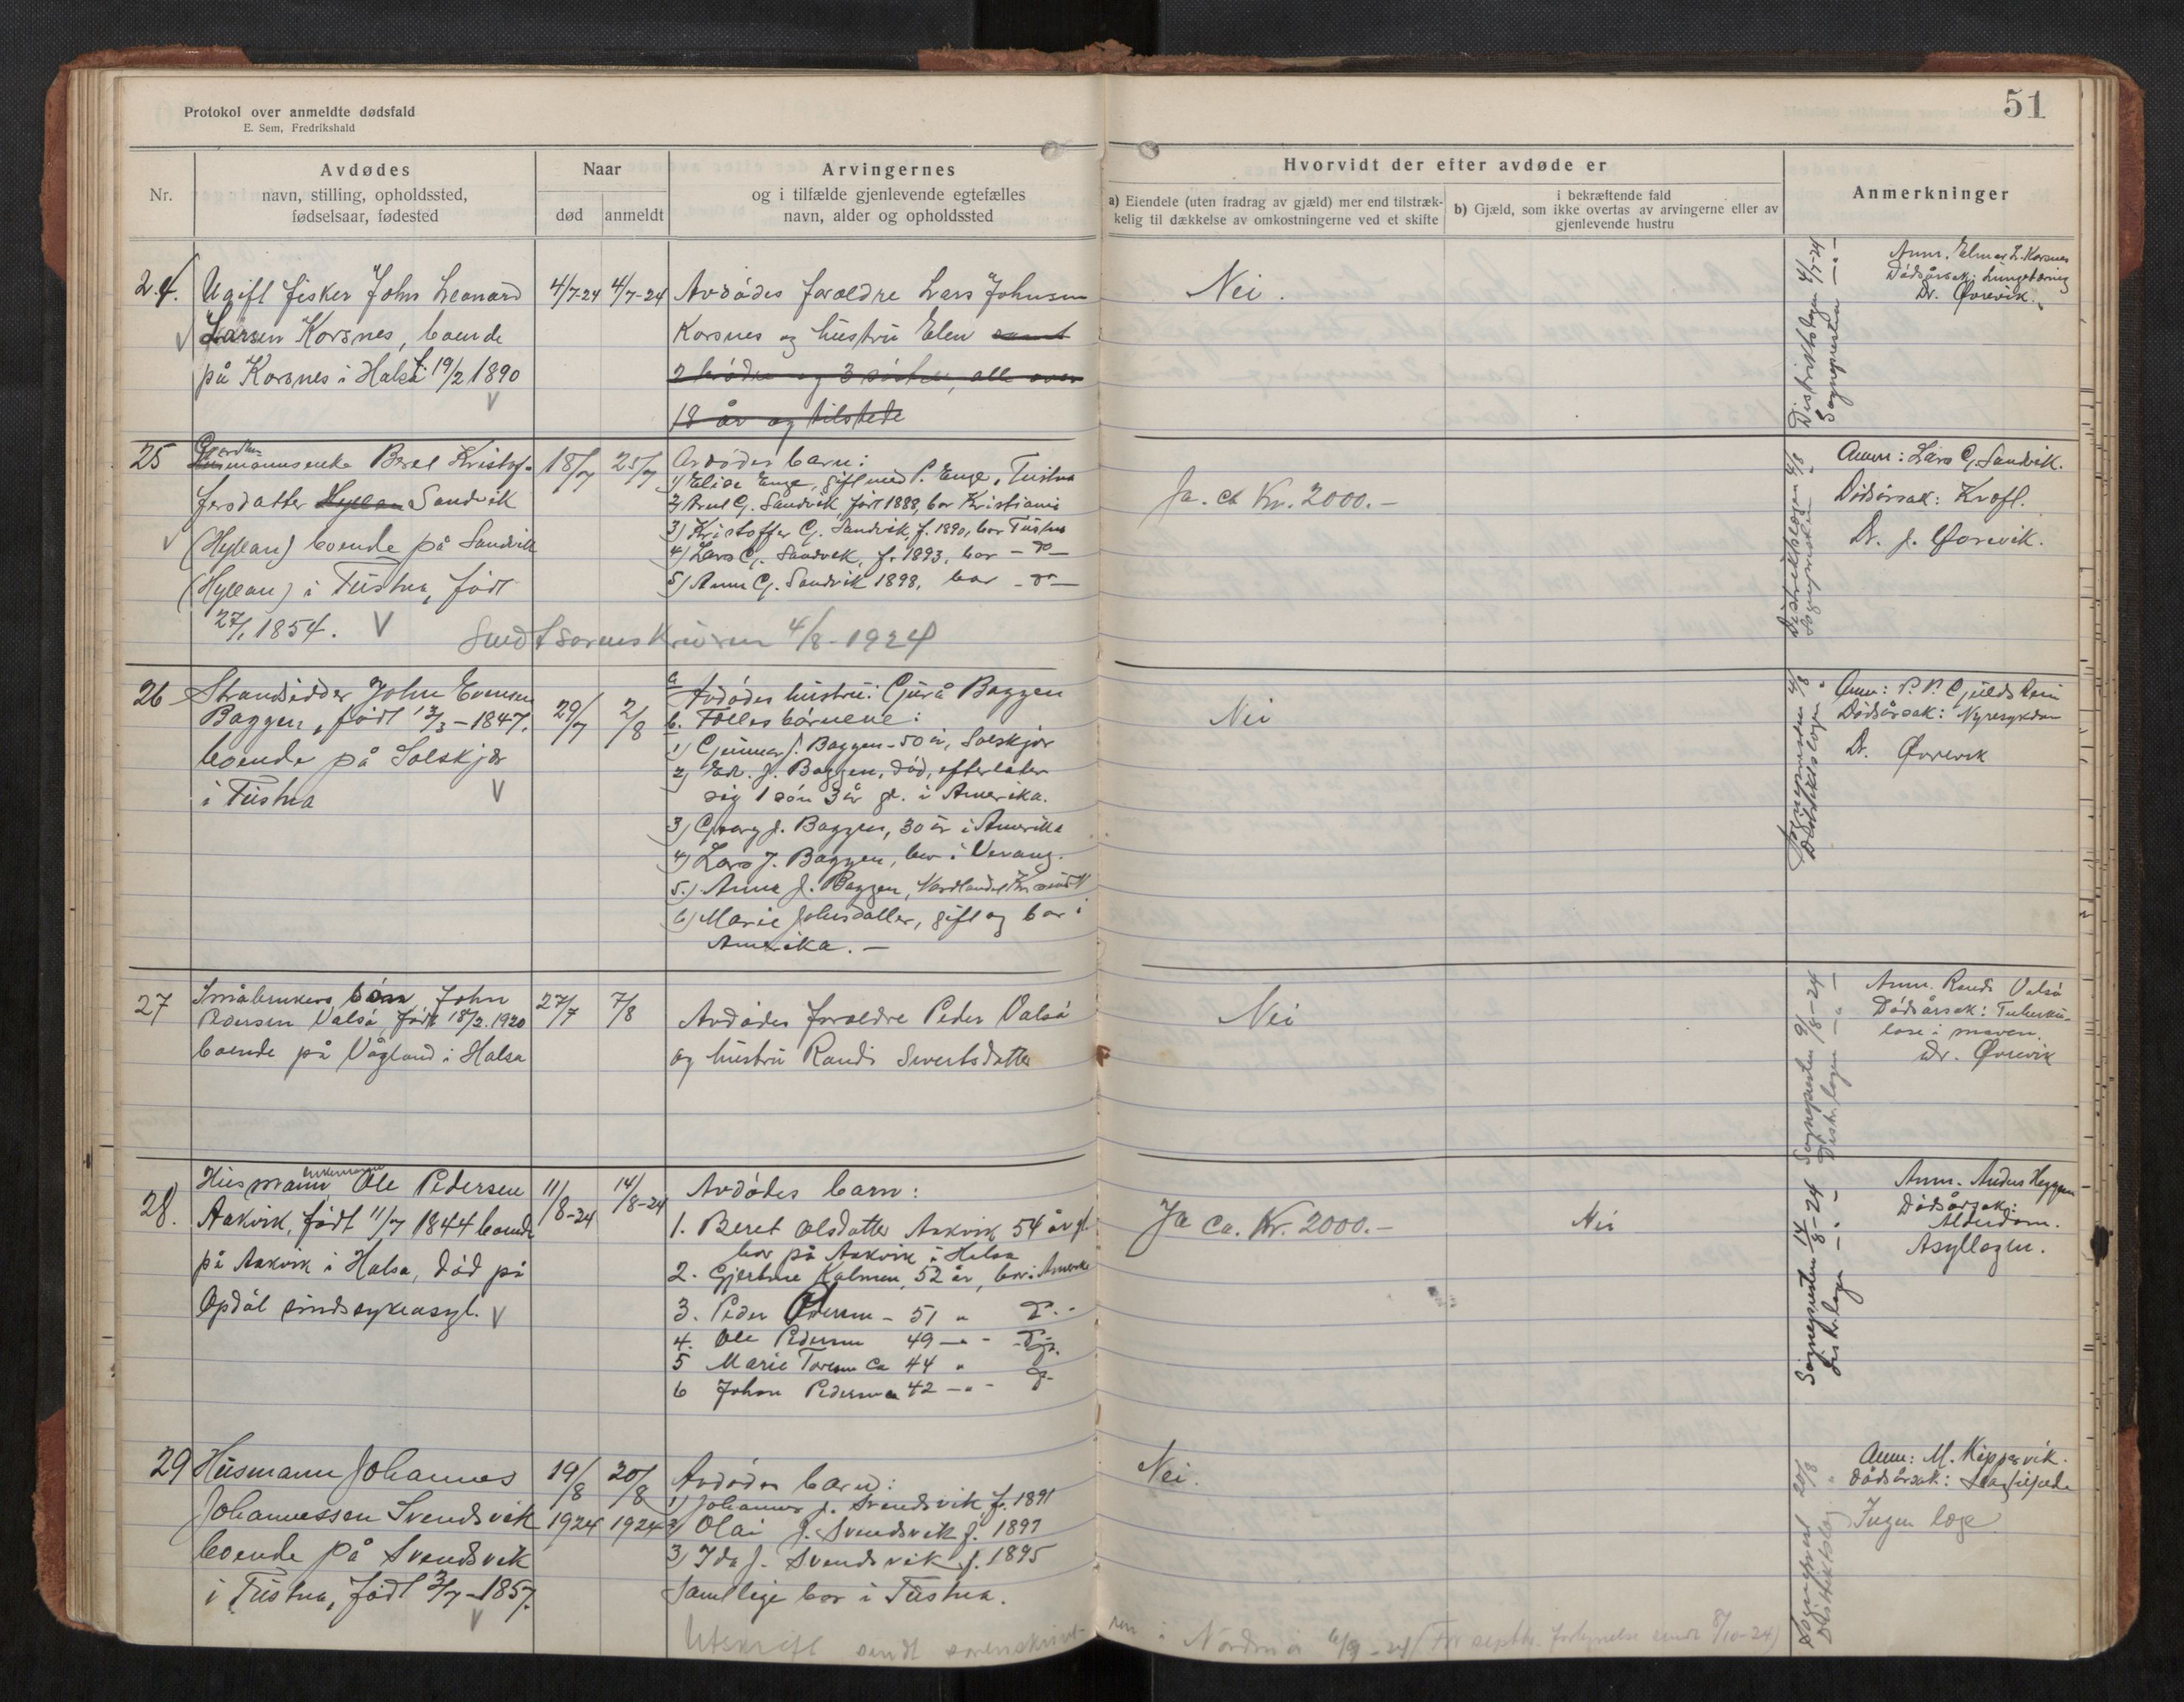 Protokol over anmeldte dødsfald
E. Sem, Fredrikshald
51
Nr.
Avdødes
navn, stilling, opholdssted,
fødselsaar, fødested
Naar
død
anmeldt
Arvingernes
og i tilfælde gjenlevende egtefælles
navn, alder og opholdssted
Hvorvidt der efter avdøde er
a) Eiendele (uten fradrag av gjæld) mer end tilstræk-
kelig til dækkelse av omkostningerne ved et skifte
i bekræftende fald
b) Gjæld, som ikke overtas av arvingerne eller av
gjenlevende hustru
Anmerkninger
24.
Ugift fisker John Leonard
Larsen Korsnes, boende
på Korsnes i Halsa 19/2 1890
4/7-24
4/7-24
Avdødes forældre Lars Johnsen
Korsnes og hustru Elen samt
2 brødre og 3 søstre, alle over
18 år og tilstede
Nei.
Distriktslægen 4/7-24
Sognepresten
Anm. Elmar L. Korsnes
Dødsårsak: Lungetæring
Dr. Øvrevik.
25
Gaardm.
mannsenke Beret Kristof-
fersdatter Hyllan Sandvik
(Hyllan) boende på Sandvik
(Hyllan) i Tustna, født
27/1 1854. V
18/7
25/7
Avdødes barn:
1) Elise Enge, gift med P. Enge, Tustna
2) G. Sandvik, født 1888, bor Kristiania
3) Kristoffer G. Sandvik, f. 1890, bor Tustna
4) Lars G. Sandvik, f. 1893, bor - do -
5) Anne G. Sandvik 1898, bor - do -
Sendt sorenskriveren 4/8-1924
Ja. ca Kr. 2000.-
Distriktslægen
Sognepresten
Anm: Lars G. Sandvik.
Dødsårsak: Kræft.
Dr. J. Øvrevik.
26
Strandsidder John Evensen
Baggen, født 13/3-1847.
boende på Solskjær
i Tustna V
29/7
2/8
a Avdødes hustru: Gurå Baggen
b. Fælles børnene:
1) Gunnar J. Baggen - 50 år, Solskjær
2) Edv. J. Baggen, død, efterlater
sig 1 søn 3 år gl. i Amerika.
3) Georg J. Baggen, 30 år i Amerika
4) Lars J. Baggen, bor i
5.) Anna J. Baggen, Nordlandet Kr.sund N
6) Marie Johnsdatter, gift og bor i
Amerika. -
Nei
Sognepresten
Distriktslægen
Anm: P. P. Gjuldsheim
Dødsårsak: Nyresykdom
Dr. Øvrevik
27
Småbrukers barn, John
Pedersen Valsø, født 18/2. 1920
boende på Vågland i Halsa
27/7
7/8
Avdødes forældre Peder Valsø
og hustru Randi Sivertsdatter
Nei
Sognepresten 9/8-24
Distr. lægen
Anm. Randi Valsø
Dødsårsak: Tuberku-
lose i maven.
Dr. Øvrevik
28.
Husmann, enkemann Ole Pedersen
Aakvik, født 11/7 1844 boende
på Aakvik i Halsa, død på
Opdøl sindsykeasyl. V
11/8-24
14/8-24
Avdødes barn:
1. Beret Olsdatter Aakvik 54 år gl.
bor på Aakvik i Halsa
2. Gjertine Kalmen, 52 år, bor i Amerika
3. Peder Pedersen - 51 " do.
4. Ole Pedersen 49 - " - do.
5 Marie ca 44 " do.
6 Johan Pedersen 42 - " - do.
Ja ca. Kr. 2000.-
Nei
Sognepresten 14/8-24
distr. læge
Anm. Anders Heggem
Dødsårsak:
Alderdom.
Asyllægen.
29
Husmann Johannes
Johannessen Svendsvik
boende på Svendsvik
i Tustna, født 3/7-1857.
V
19/8
1924
20/8
1924
Avdødes barn:
1) Johannes J. Svendsvik f. 1891
2) Olai J. Svendsvik f. 1897
3) Ida J. Svendsvik f. 1895
Samtlige bor i Tustna.
Nei.
Sogneprest 20/8
Distriktslæg
Anm: M. Kippervik.
Dødsårsak:
Ingen læge
Utskrift sendt sorenskrive-
ren i Nordmør 6/9-24 (For septbr. fornyelse sendt 8/10-24)